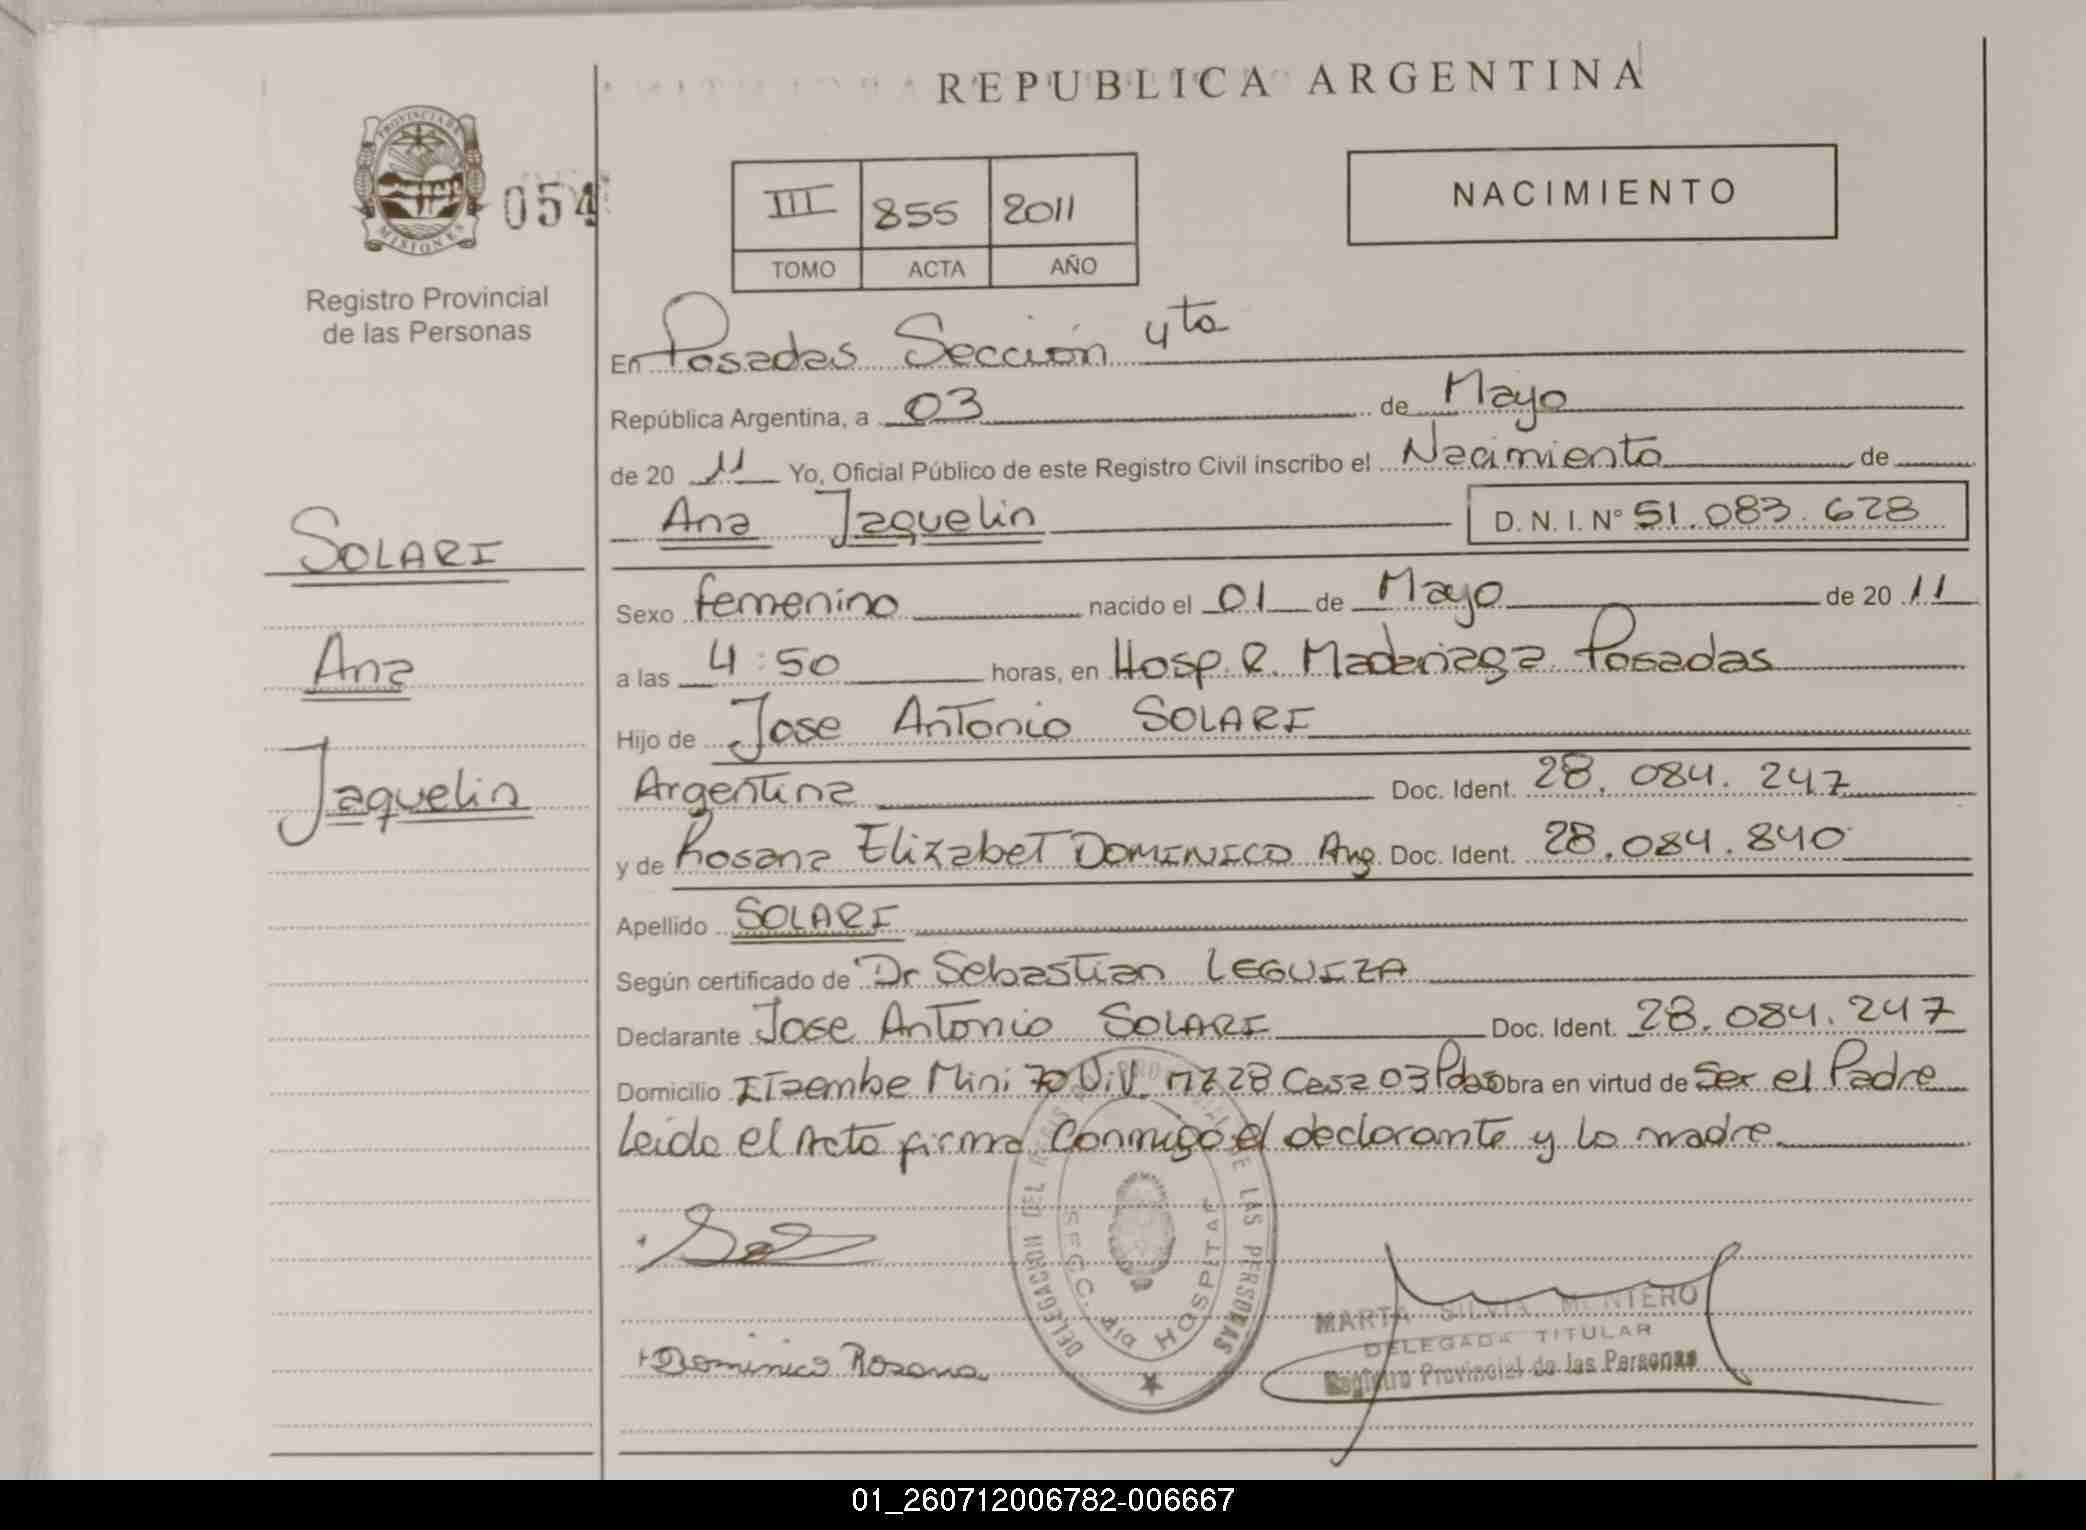 REPUBLICA ARGENTINA
PROVINCIA DE MISIONES
054
Registro Provincial
de las Personas
III 855 2011
TOMO ACTA AÑO
NACIMIENTO
En Posadas Sección 4ta
República Argentina, a 03 de Mayo
de 20 11 Yo, Oficial Público de este Registro Civil inscribo el Nacimiento de
Ana Jaquelin D. N. I. Nº 51.083.628
SOLARI
Ana
Jaquelin
Sexo femenino nacido el 01 de Mayo de 20 11
a las 4:50 horas, en Hosp. R. Madariaga Posadas
Hijo de Jose Antonio SOLARI
Argentina Doc. Ident. 28.084.247
y de Rosana Elizabet DOMINICO Arg. Doc. Ident. 28.084.840
Apellido SOLARI
Según certificado de Dr Sebastian LEGUIZA
Declarante Jose Antonio SOLARI Doc. Ident. 28.084.247
Domicilio Itaembe Mini 70 Viv. mz 28 Casa 03 Pdas obra en virtud de Ser el Padre
Leida el Acta firma conmigo el declarante y la madre
DELEGACION DEL REGISTRO PROVINCIAL DE LAS PERSONAS
SECC. 4ta HOSPITAL
Dominico Rosana
MARTA SILVIA MONTERO
DELEGADA TITULAR
Registro Provincial de las Personas
01_260712006782-006667